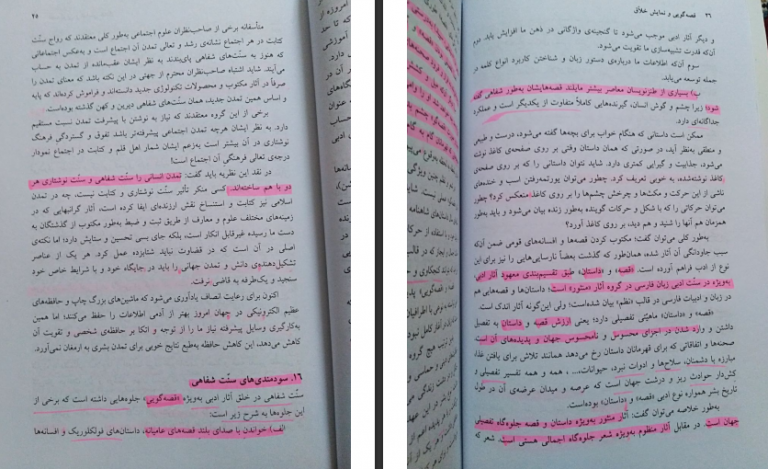 ۲۵
متأسفانه برخی از صاحب‌نظران علوم اجتماعی به‌طور کلی معتقدند که رواج سنّت
کتابت در هر اجتماع نشانه‌ی رشد و تعالی تمدن آن اجتماع است و به‌عکس اجتماعاتی
که هنوز به سنّت‌های شفاهی پای‌بندند به نظر ایشان عقب‌مانده از تمدن به حساب
می‌آیند. شاید اشتباه صاحب‌نظران محترم از جهتی در این نکته باشد که معنای تمدن را
صرفاً در آثار مکتوب و محصولات تکنولوژی جدید دانسته‌اند و فراموش کرده‌اند که پایه
و اساس همین تمدن جدید، همان سنّت‌های شفاهی دیرین و کهن گذشته بوده‌است.
برخی از این گروه معتقدند که نیاز به نوشتن با پیشرفت تمدن نسبت مستقیم
دارد. به نظر ایشان هرچه تمدن اجتماعی پیشرفته‌تر باشد تفوق و گستردگی فرهنگ
نوشتاری در آن بیشتر است به‌زعم ایشان شمار اهل قلم و کتابت در اجتماع نمودار
درجه‌ی تعالی فرهنگی آن اجتماع است!
در نقد این نظریه باید گفت: تمدن انسانی را سنّت شفاهی و سنّت نوشتاری هر
دو با هم ساخته‌اند. کسی منکر تأثیر سنّت نوشتاری و کتابت نیست، چه در تمدن
اسلامی نیز کتابت و استنساخ نقش ارزنده‌ای ایفا کرده است، آثار گرانبهایی که در
زمینه‌های مختلف علوم و معارف از طریق ثبت و ضبط به‌طور مکتوب از گذشتگان به
دست ما رسیده غیرقابل انکار است، بلکه جای بسی تحسین و ستایش دارد؛ اما نکته‌ی
اصلی در آن است که در قضاوت نباید شتابزده عمل کرد. هر یک از عناصر
تشکیل‌دهنده‌ی دانش و تمدن جهانی را باید در جایگاه خود و با شرایط خاص خود
سنجید و یک‌طرفه به قاضی نرفت.
اکنون برای رعایت انصاف یادآوری می‌شود که ماشین‌های بزرگ چاپ و حافظه‌های
عظیم الکترونیکی در جهان امروز بهتر از آدمی اطلاعات را حفظ می‌کنند؛ اما همین
به‌کارگیری وسایل پیشرفته نیاز ما را از توجه و اتکا بر حافظه‌ی شخصی و تقویت آن
کاهش می‌دهد، این کاهش حافظه به‌طبع نتایج خوبی برای تمدن بشری به ارمغان نمی‌آورد.
۱۶. سودمندی‌های سنّت شفاهی
سنّت شفاهی در خلق آثار ادبی به‌ویژه «قصه‌گویی» جلوه‌هایی داشته است که برخی از
این جلوه‌ها به شرح زیر است:
الف) خواندن با صدای بلند قصه‌های عامیانه، داستان‌های فولکلوریک و افسانه‌ها
۲۶ قصه‌گویی و نمایش خلاق
و دیگر آثار ادبی موجب می‌شود تا گنجینه‌ی واژگانی در ذهن ما افزایش یابد دوم
آن‌که قدرت تشبیه‌سازی ما تقویت می‌شود.
سوم آن‌که اطلاعات ما درباره‌ی دستور زبان و شناختن کاربرد انواع کلمه در
جمله توسعه می‌یابد.
ب) بسیاری از طنزنویسان معاصر بیشتر مایلند قصه‌هایشان به‌طور شفاهی گفته
شود؛ زیرا چشم و گوش انسان، گیرنده‌هایی کاملاً متفاوت از یکدیگر است و عملکرد
جداگانه‌ای دارد.
ممکن است داستانی که هنگام خواب برای بچه‌ها گفته می‌شود، درست و طبیعی
و منطقی به‌نظر آید، در صورتی که همان داستان وقتی بر روی صفحه‌ی کاغذ نوشته
می‌شود، جذابیت و گیرایی کمتری دارد. شاید نتوان داستانی را که بر روی صفحه‌ی
کاغذ نوشته‌شده، به خوبی تعریف کرد. چطور می‌توان پوزه‌مه‌رفتن اسب و خنده‌های
ناشی از این حرکت و مکث‌ها و چرخش چشم‌ها را بر روی کاغذ منعکس کرد؟ چطور
می‌توان حرکاتی را که با شکل و حرکات گوینده به‌طور زنده بیان می‌شود و باید به‌طور
همزمان هم آنها را شنید و هم دید، بر روی کاغذ آورد؟
به‌طور کلی می‌توان گفت: مکتوب کردن قصه‌ها و افسانه‌های قومی ضمن آن‌که
سبب جاودانگی آن آثار شده، همان‌طور که گذشت بعضاً نارسایی‌هایی را نیز برای این
نوع از ادب فراهم آورده است. «قصه» و «داستان» طبق تقسیم‌بندی معهود آثار ادبی،
به‌ویژه در سنّت ادبی زبان فارسی در گروه آثار «منثور» است؛ داستان‌ها و قصه‌هایی هم
در زبان و ادبیات فارسی در قالب «نظم» بیان شده‌است؛ ولی این‌گونه آثار اندک است.
«قصه» و «داستان» ماهیتی تفصیلی دارد؛ یعنی ارزش قصه و داستان به تفصیل
داشتن و وارد شدن در اجزای محسوس و نامحسوس جهان و پدیده‌های آن است
صحنه‌ها و اتفاقاتی که برای قهرمانان داستان رخ می‌دهد همانند تلاش برای یافتن غذا
مبارزه با دشمنان، سلاح‌ها و ادوات نبرد، حیوانات،... ، همه و همه تفسیر تفصیلی
کش‌دار حوادث ریز و درشت جهان است که عرصه و میدان عرضه‌ی آن در طول
تاریخ بشر همواره نوع ادبی «قصه» و «داستان» بوده‌است.
به‌طور خلاصه می‌توان گفت: آثار منثور به‌ویژه داستان و قصه جلوه‌گاه تفصیلی
جهان است. در مقابل آثار منظوم به‌ویژه شعر جلوه‌گاه اجمالی هستی است، شعر که